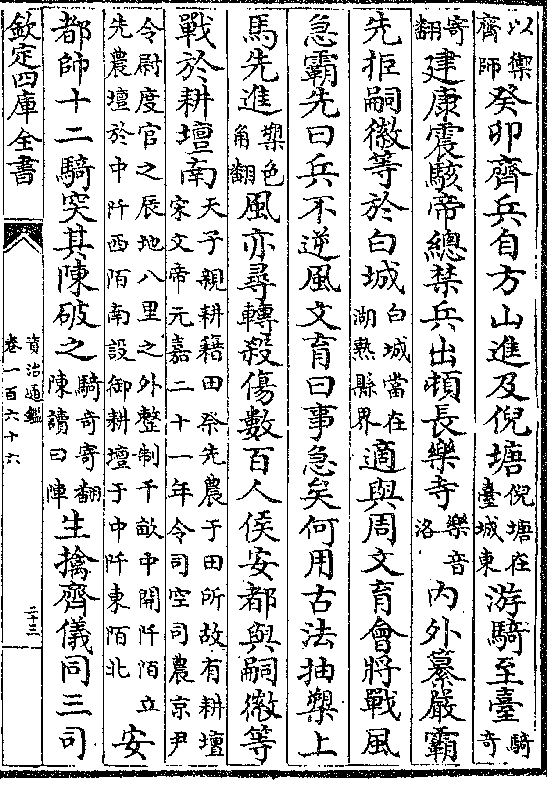 以禦齊師癸卯齊兵自方山進及倪塘倪塘在臺城東游騎至臺騎奇
寄翻建康震駭帝總禁兵出頓長樂寺樂音洛内外纂嚴霸
先拒嗣徽等於白城白城當在湖熟縣界適與周文育會將戰風
急霸先曰兵不逆風文育曰事急矣何用古法抽槊上
馬先進槊色角翻風亦尋轉殺傷數百人侯安都與嗣徽等
戰於耕壇南天子親耕藉田祭先農于田所故有耕壇宋文帝元嘉二十一年令司空司農京尹
令尉度官之辰地八里之外整制千畝中開阡陌立先農壇於中阡西陌南設御耕壇于中阡東陌北安
都帥十二騎突其陳破之騎奇寄翻陳讀曰陣生擒齊儀同三司
欽定四庫全書
資治通鑑
卷一百六十六
二十三